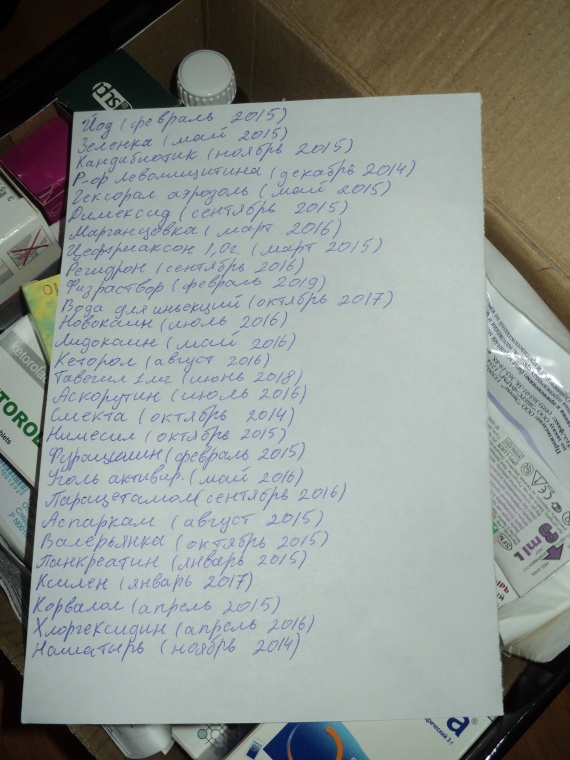 Йод (февраль 2015)
Зеленка (май 2015)
Кандибиотик (ноябрь 2015)
Р-ор левомицитина (декабрь 2014)
Гексорал аэрозоль (май 2015)
Димексид (сентябрь 2015)
Марганцовка (март 2016)
Цефтриаксон 1,0г (март 2015)
Регидрон (сентябрь 2016)
Физраствор (февраль 2019)
Вода для инъекций (октябрь 2017)
Новокаин (июль 2016)
Лидокаин (май 2016)
Кеторол (август 2016)
Тавегил 1мг (июнь 2018)
Аскорутин (июль 2016)
Смекта (октябрь 2014)
Нимесил (октябрь 2015)
Фурацилин (февраль 2015)
Уголь активир. (май 2016)
Парацетамол (сентябрь 2016)
Аспаркам (август 2015)
Валерьянка (октябрь 2015)
Панкреатин (январь 2015)
Ксилен (январь 2017)
Корвалол (апрель 2015)
Хлоргексидин (апрель 2016)
Нашатырь (ноябрь 2014)
ketorola
TOROL
blets
3 ml